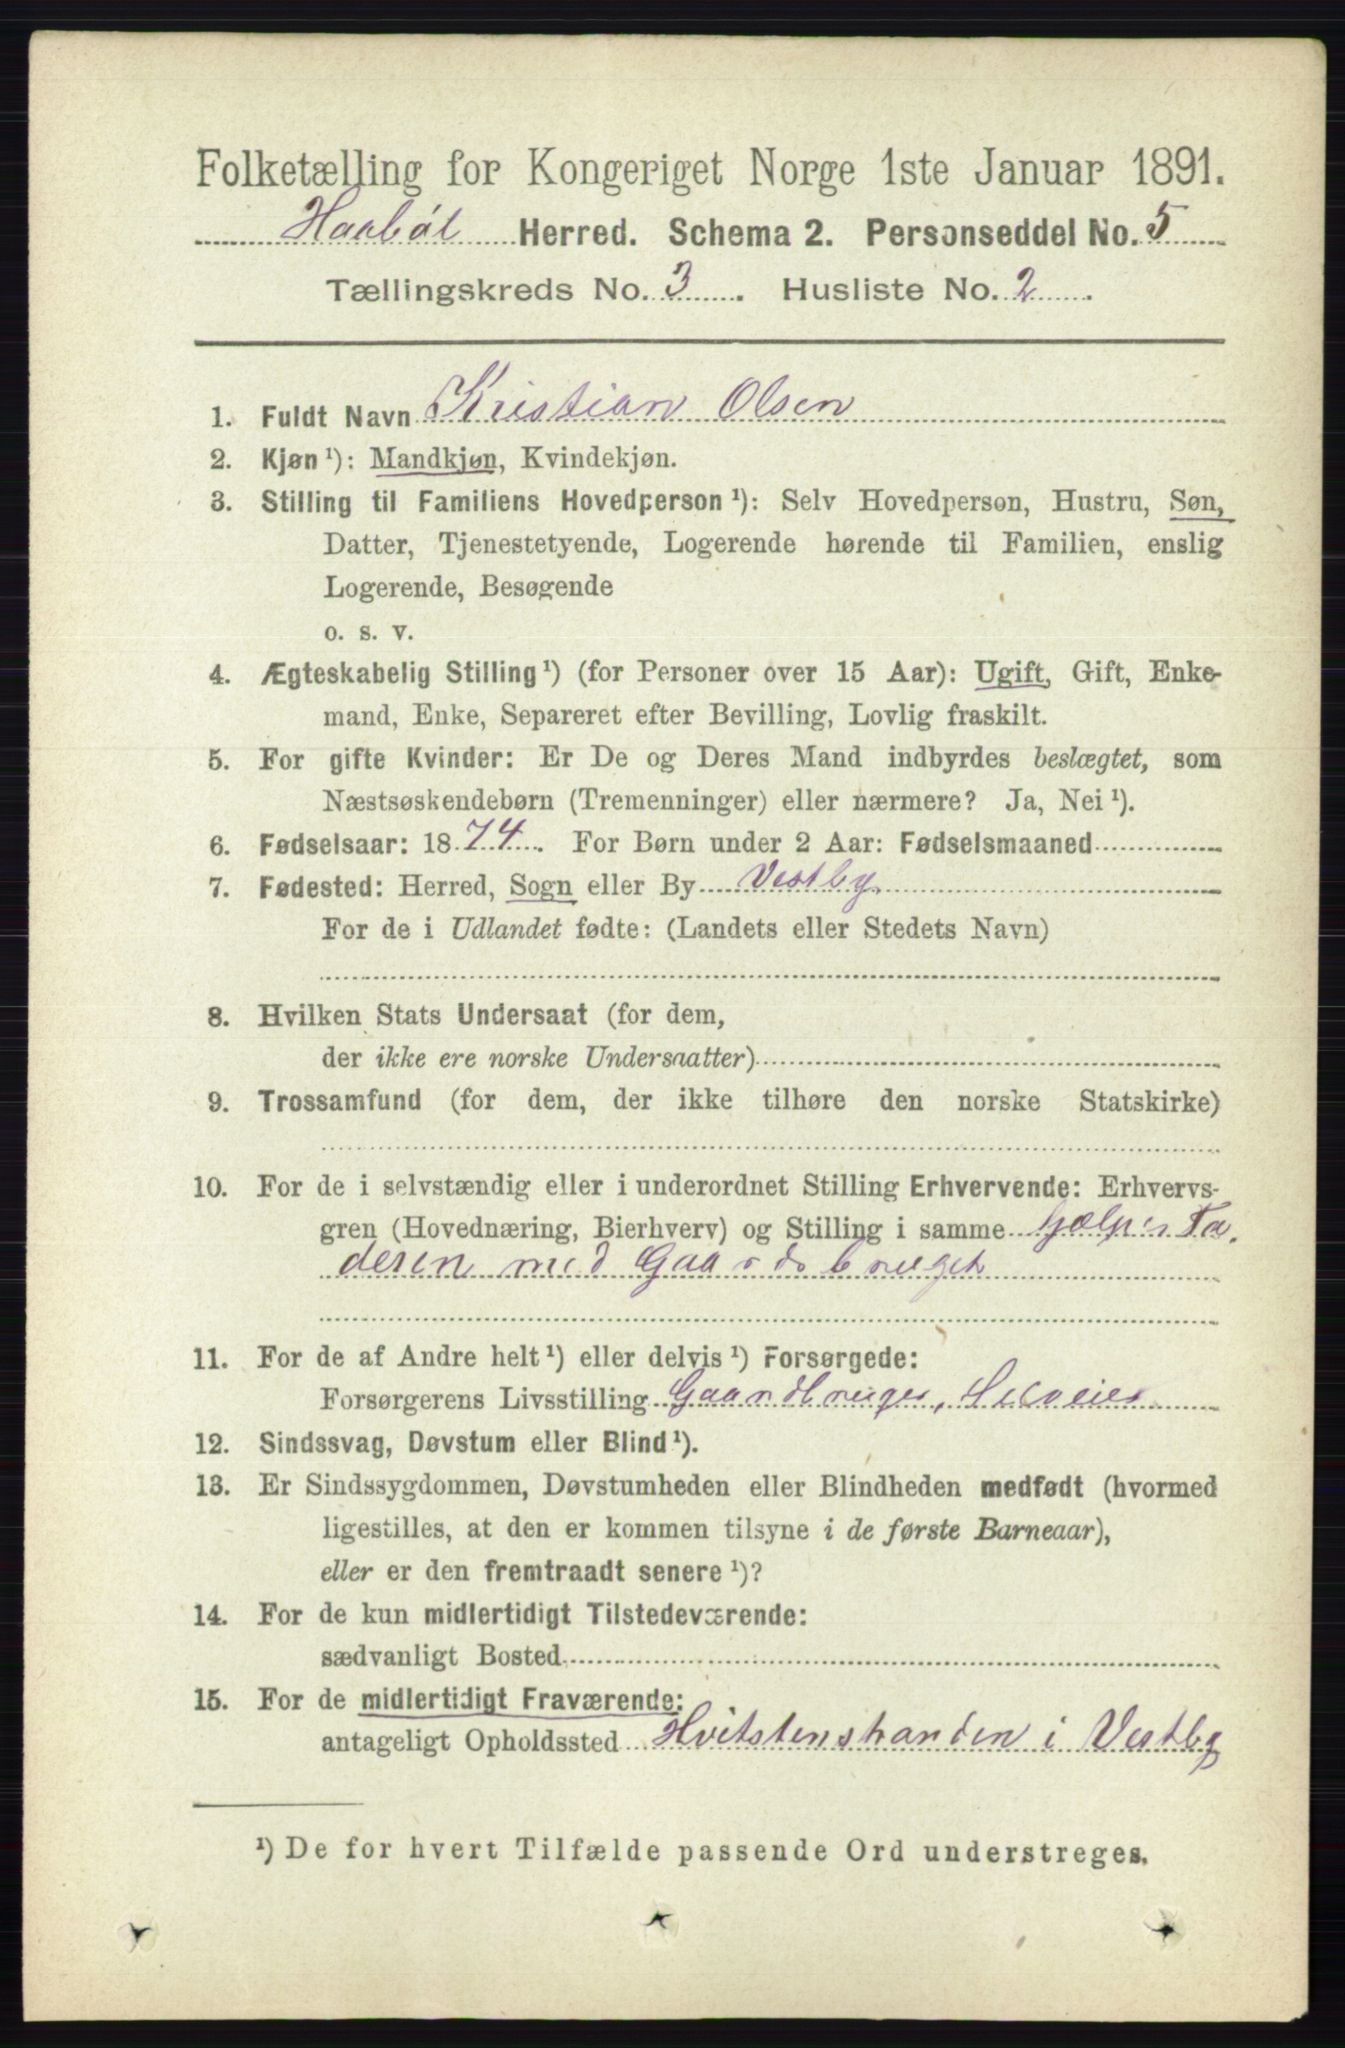 Folketælling for Kongeriget Norge 1ste Januar 1891.
Haabøl Herred. Schema 2. Personseddel No. 5
Tællingskreds No. 3. Husliste No. 2.
1. Fuldt Navn Kristian Olsen
2. Kjøn ¹): Mandkjøn, Kvindekjøn.
3. Stilling til Familiens Hovedperson ¹): Selv Hovedperson, Hustru, Søn,
Datter, Tjenestetyende, Logerende hørende til Familien, enslig
Logerende, Besøgende
o. s. v.
4. Ægteskabelig Stilling ¹) (for Personer over 15 Aar): Ugift, Gift, Enke-
mand, Enke, Separeret efter Bevilling, Lovlig fraskilt.
5. For gifte Kvinder: Er De og Deres Mand indbyrdes beslægtet, som
Næstsøskendebørn (Tremenninger) eller nærmere? Ja, Nei ¹).
6. Fødselsaar: 1874. For Børn under 2 Aar: Fødselsmaaned
7. Fødested: Herred, Sogn eller By Vestby
For de i Udlandet fødte: (Landets eller Stedets Navn)
8. Hvilken Stats Undersaat (for dem,
der ikke ere norske Undersaatter)
9. Trossamfund (for dem, der ikke tilhøre den norske Statskirke)
10. For de i selvstændig eller i underordnet Stilling Erhvervende: Erhvervs-
gren (Hovednæring, Bierhverv) og Stilling i samme hjælper Fa
deren med Gaardsbruget
11. For de af Andre helt ¹) eller delvis ¹) Forsørgede:
Forsørgerens Livsstilling Gaardbruger, Selveier
12. Sindssvag, Døvstum eller Blind ¹).
13. Er Sindssygdommen, Døvstumheden eller Blindheden medfødt (hvormed
ligestilles, at den er kommen tilsyne i de første Barneaar),
eller er den fremtraadt senere ¹)?
14. For de kun midlertidigt Tilstedeværende:
sædvanligt Bosted
15. For de midlertidigt Fraværende:
antageligt Opholdssted Hvitstenstranden i Vestby
¹) De for hvert Tilfælde passende Ord understreges.